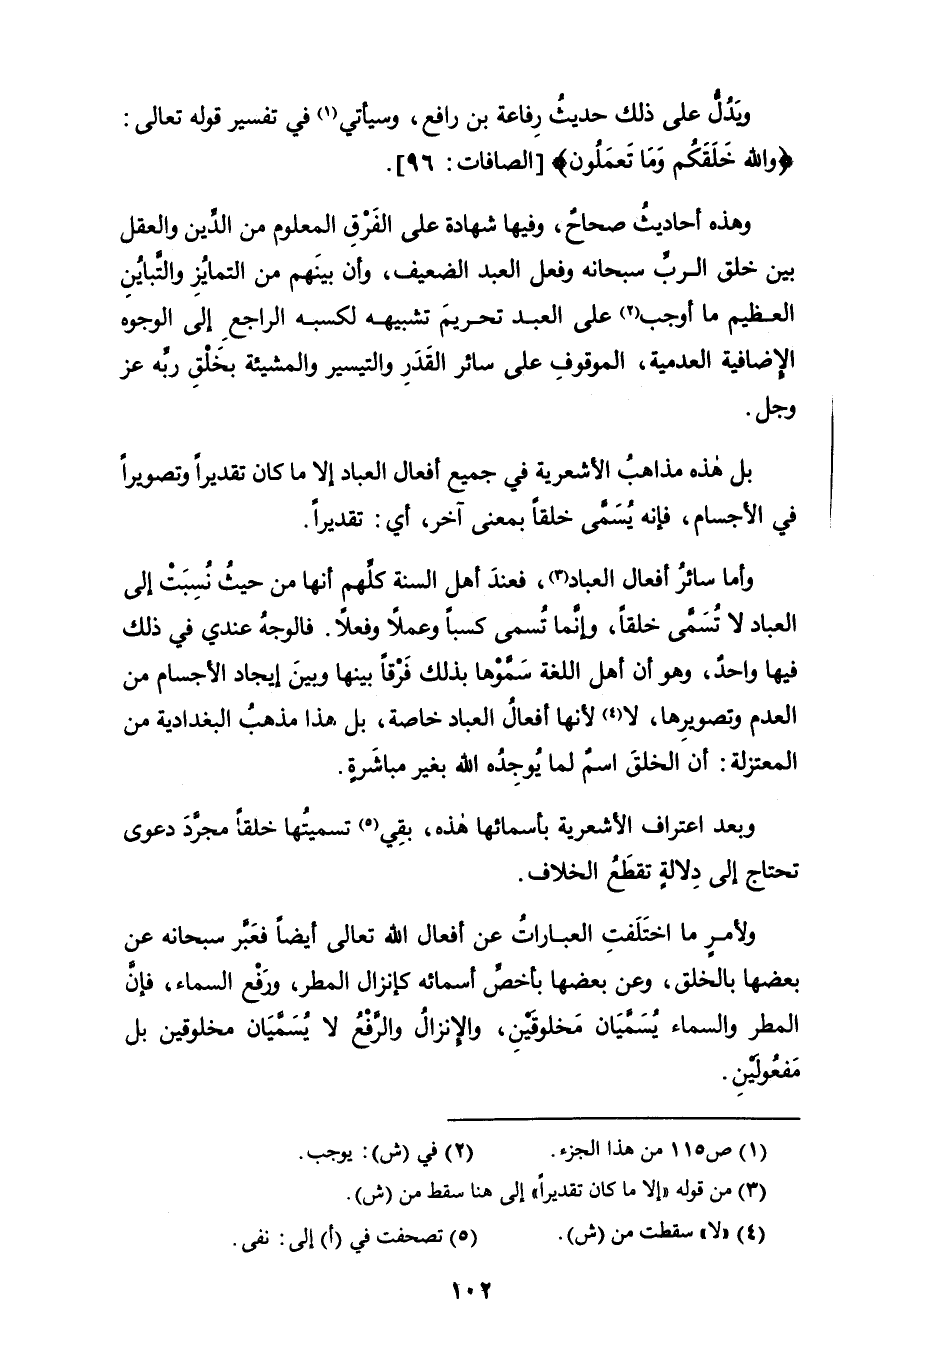 ويَدُلُّ على ذلك حديثُ رِفاعة بن رافع، وسيأتي(١) في تفسير قوله تعالى:
﴿والله خَلَقَكُم وَمَا تَعمَلُون﴾ [الصافات: ٩٦].
وهذه أحاديثُ صحاحٌ، وفيها شهادة على الفَرْقِ المعلوم من الدِّين والعقل
بين خلق الـربِّ سبحانه وفعل العبد الضعيف، وأن بينَهم من التمايُزِ والتَّبايُنِ
العـظيم ما أوجب(٢) على العبـد تحـريمَ تشبيهـه لكسبـه الراجع ِ إلى الوجوه
الإضافية العدمية، الموقوفِ على سائر القَدَرِ والتيسير والمشيئة بخَلْقِ ربِّه عز
وجل.
بل هٰذه مذاهبُ الأشعرية في جميع أفعال العباد إلا ما كان تقديراً وتصويراً
في الأجسام، فإنه يُسَمَّى خلقاً بمعنى آخر، أي: تقديراً.
وأما سائرُ أفعال العباد(٣)، فعندَ أهل السنة كلِّهم أنها من حيثُ نُسِبَتْ إلى
العباد لا تُسَمَّى خلقاً، وإنَّما تُسمى كسباً وعملًا وفعلًا. فالوجهُ عندي في ذلك
فيها واحدٌ، وهو أن أهل اللغة سَمَّوْها بذلك فَرْقاً بينها وبينَ إيجاد الأجسام من
العدم وتصويرِها، لا(٤) لأنها أفعالُ العباد خاصة، بل هذا مذهبُ البغدادية من
المعتزلة: أن الخلقَ اسمٌ لما يُوجِدُه الله بغير مباشَرةٍ.
وبعد اعتراف الأشعرية بأسمائها هٰذه، بقِي(٥) تسميتُها خلقاً مجرَّدَ دعوى
تحتاج إلى دِلالةٍ تقطَعُ الخلاف.
ولأمـرٍ ما اختَلَفتِ العبـاراتُ عن أفعال الله تعالى أيضاً فعَبَّر سبحانه عن
بعضها بالخلق، وعن بعضها بأخصِّ أسمائه كإنزال المطر، ورَفْع السماء، فإنَّ
المطر والسماء يُسَمَّيَان مَخلوقَيْنِ، والإِنزالُ والرَّفْعُ لا يُسَمَّيَان مخلوقين بل
مَفعُولَيْنِ.
(١) ص١١٥ من هذا الجزء. (٢) في (ش): يوجب.
(٣) من قوله «إلا ما كان تقديراً» إلى هنا سقط من (ش).
(٤) «لا» سقطت من (ش). (٥) تصحفت في (أ) إلى: نفى.
١٠٢